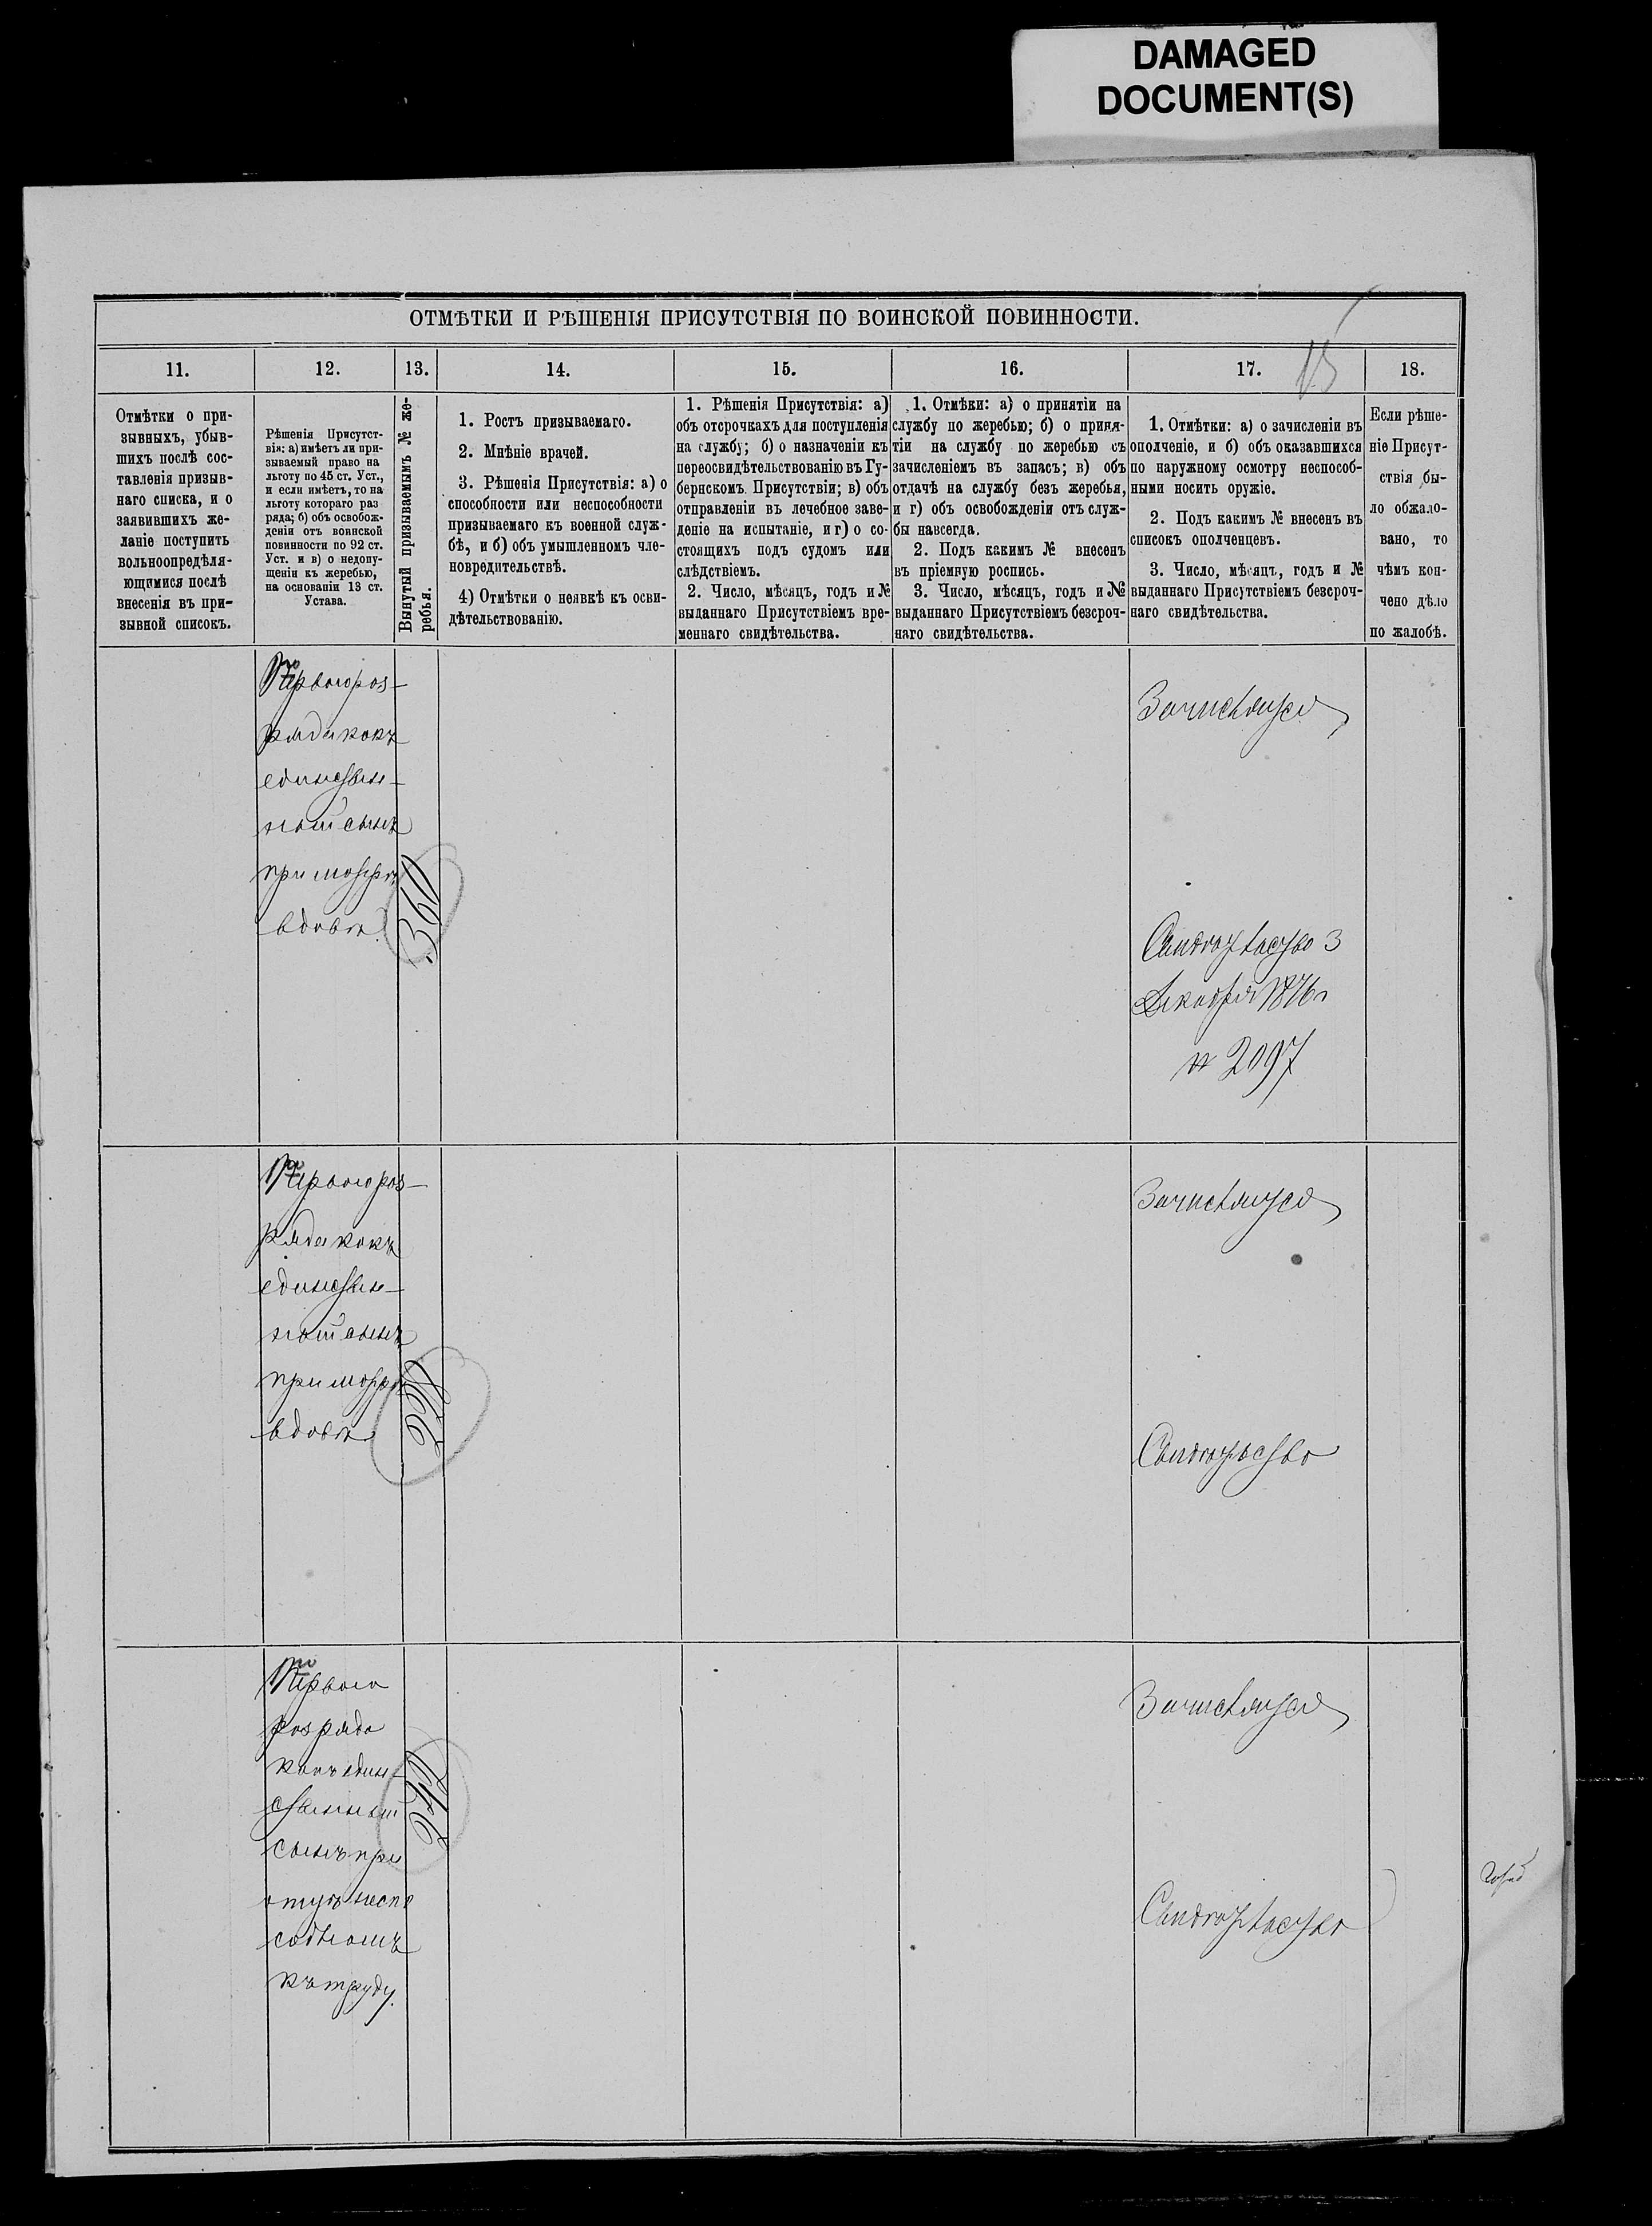 DAMAGED
DOCUMENT(S)
ОТМѢТКИ И РѢШЕНІЯ ПРИСУТСТВІЯ ПО ВОИНСКОЙ ПОВИННОСТИ.
15
11.
12.
13.
14.
15.
16.
17.
18.
Отмѣтки о при-
зывныхъ, убыв-
шихъ послѣ сос-
тавленія призыв-
наго списка, и о
заявившихъ же-
ланіе поступить
вольноопредѣля-
ющимися послѣ
внесенія въ при-
зывной списокъ.
Рѣшенія Присутст-
вія: а) имѣетъ ли при-
зываемый право на
льготу по 45 ст. Уст.,
и если имѣетъ, то на
льготу котораго раз
ряда; б) объ освобож-
деніи отъ воинской
повинности по 92 ст.
Уст. и в) о недопу-
щеніи къ жеребью,
на основаніи 13 ст.
Устава.
Вынутый призываемымъ № же-
ребья.
1. Ростъ призываемаго.
2. Мнѣніе врачей.
3. Рѣшенія Присутствія: а) о
способности или неспособности
призываемаго къ военной служ-
бѣ, и б) объ умышленномъ чле-
новредительствѣ.
4) Отмѣтки о неявкѣ къ осви-
дѣтельствованію.
1. Рѣшенія Присутствія: а)
объ отсрочкахъ для поступленія
на службу; б) о назначеніи къ
переосвидѣтельствованію въ Гу-
бернскомъ Присутствіи; в) объ
отправленіи въ лечебное заве-
деніе на испытаніе, и г) о со-
стоящихъ подъ судомъ или
слѣдствіемъ.
2. Число, мѣсяцъ, годъ и №
выданнаго Присутствіемъ вре-
меннаго свидѣтельства.
1. Отмѣки: а) о принятіи на
службу по жеребью; б) о приня-
тіи на службу по жеребью съ
зачисленіемъ въ запасъ; в) объ
отдачѣ на службу безъ жеребья,
и г) объ освобожденіи отъ служ-
бы навсегда.
2. Подъ какимъ № внесенъ
въ пріемную роспись.
3. Число, мѣсяцъ, годъ и №
выданнаго Присутствіемъ безсроч-
наго свидѣтельства.
1. Отмѣтки: а) о зачисленіи въ
ополченіе, и б) объ оказавшихся
по наружному осмотру неспособ-
ными носить оружіе.
2. Подъ какимъ № внесенъ въ
списокъ ополченцевъ.
3. Число, мѣсяцъ, годъ и №
выданнаго Присутствіемъ безсроч-
наго свидѣтельства.
Если рѣше-
ніе Присут-
ствія бы-
ло обжало-
вано, то
чѣмъ кон-
чено дѣло
по жалобѣ.
Перваго раз-
ряда какъ
единствен-
ный сынъ
при матери
вдовѣ.
360
Зачисляется
Свидѣтельство 3
Декабря 1876 г
№ 2097
Перваго раз-
ряда какъ
единствен-
ный сынъ
при матери
вдовѣ
Зачисляется
Свидѣтельство
Перваго
разряда
какъ един-
ственный
сынъ при
отцѣ неспо
собномъ
къ труду.
Зачисляется
Свидѣтельство